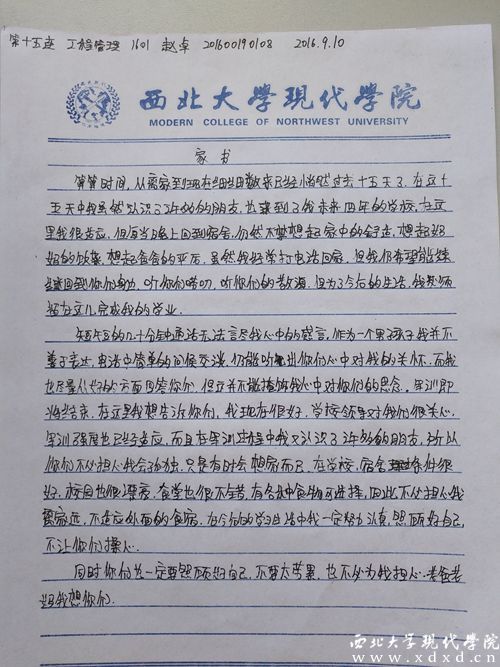 第十五连 工程管理 1601 赵卓 201600190108 2016.9.10
西北大學現代學院
MODERN COLLEGE OF NORTHWEST UNIVERSITY
家书
算算时间，从离家到现在细细数来已经悄然过去十五天了。在这十
五天中我虽然认识了许多的朋友，也来到了我未来四年的学校，在这
里我很适应，但每当晚上回到宿舍，仍然不禁想起家中的
妈的饭菜，想起爸爸的 虽然我经常打电话回家，但我仍希望能继
续回到你们身边，听你们唠叨，听你们的教诲，但为了今后的生活，我必须
留在这儿完成我的学业。
短短的几十分钟电话无法言尽我心中的感言，作为一个男孩子我并不
善于表达，电话中简单的问候交谈，仍能听出你们心中对我的关怀，而我
也尽量从好的方面回答你们，但这并不能掩饰我心中对你们的思念。军训即
将结束，在这里我想告诉你们，我现在很好，学校领导对我们很关心，
军训强度也已经适应，而且在军训过程中我又认识了许多的朋友，所以
你们不必担心我会孤独，只是有时会想家而已，在学校，宿舍条件很
好，校园也很漂亮，食堂也很不错，有多种食物可选择，因此不必担心我
离家远，不适应外面的食宿，在今后的学习生活中我一定努力认真，照顾好自己，
不让你们操心。
同时你们也一定要照顾好自己，不要太劳累，也不必为我担心，老爸老
妈我想你们。
西北大学现代学院
www.xdxd.cn